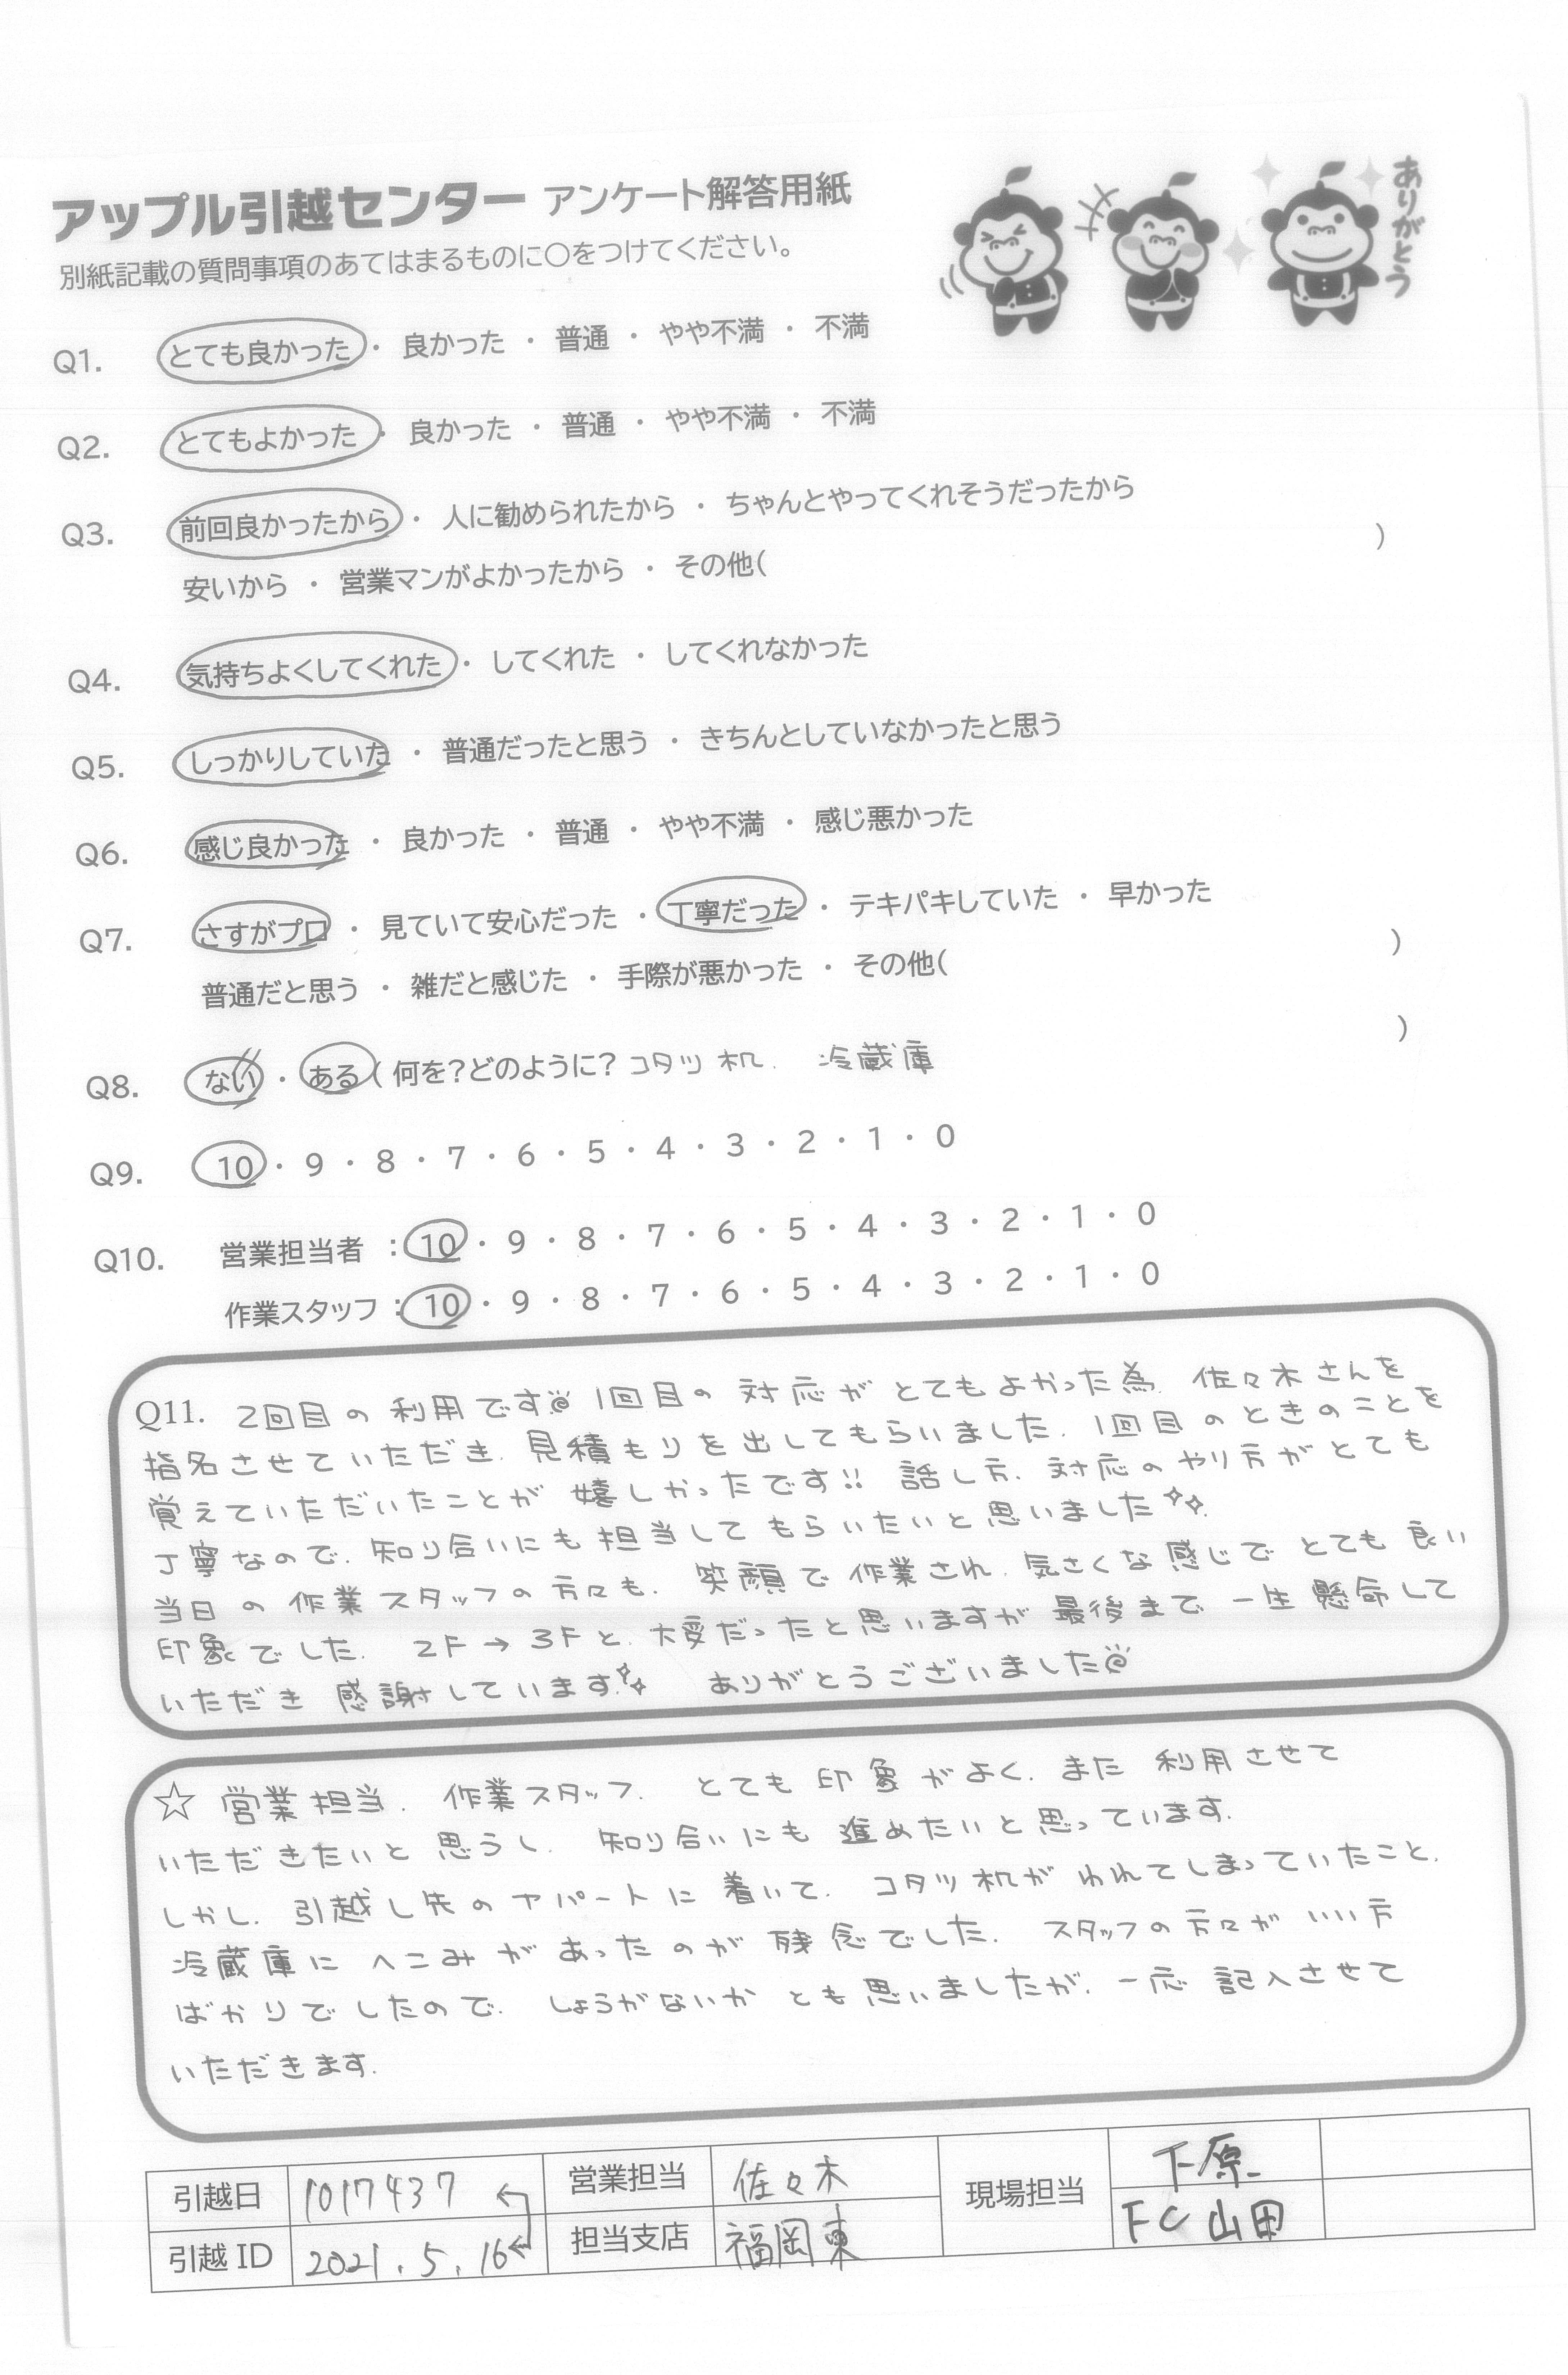 アップル引越センター アンケート解答用紙
ありがとう
別紙記載の質問事項のあてはまるものに○をつけてください。
Q1. とても良かった ・ 良かった ・ 普通 ・ やや不満 ・ 不満
Q2. とてもよかった ・ 良かった ・ 普通 ・ やや不満 ・ 不満
Q3. 前回良かったから ・ 人に勧められたから ・ ちゃんとやってくれそうだったから
安いから ・ 営業マンがよかったから ・ その他( )
Q4. 気持ちよくしてくれた ・ してくれた ・ してくれなかった
Q5. しっかりしていた ・ 普通だったと思う ・ きちんとしていなかったと思う
Q6. 感じ良かった ・ 良かった ・ 普通 ・ やや不満 ・ 感じ悪かった
Q7. さすがプロ ・ 見ていて安心だった ・ 丁寧だった ・ テキパキしていた ・ 早かった
普通だと思う ・ 雑だと感じた ・ 手際が悪かった ・ その他( )
Q8. ない ・ ある ( 何を?どのように? コタツ机. 冷蔵庫 )
Q9. 10 ・ 9 ・ 8 ・ 7 ・ 6 ・ 5 ・ 4 ・ 3 ・ 2 ・ 1 ・ 0
Q10. 営業担当者 : 10 ・ 9 ・ 8 ・ 7 ・ 6 ・ 5 ・ 4 ・ 3 ・ 2 ・ 1 ・ 0
作業スタッフ : 10 ・ 9 ・ 8 ・ 7 ・ 6 ・ 5 ・ 4 ・ 3 ・ 2 ・ 1 ・ 0
Q11. 2回目の利用です 1回目の対応がとてもよかった為. 佐々木さんを
指名させていただき. 見積もりを出してもらいました. 1回目のときのことを
覚えていただいたことが嬉しかったです!! 話し方. 対応のやり方がとても
丁寧なので. 知り合いにも担当してもらいたいと思いました.
当日の作業スタッフの方々も. 笑顔で作業され. 気さくな感じでとても良い
印象でした. 2F→3Fと. 大変だったと思いますが最後まで一生懸命して
いただき感謝しています. ありがとうございました
☆ 営業担当. 作業スタッフ. とても印象がよく. また利用させて
いただきたいと思うし. 知り合いにも進めたいと思っています.
しかし. 引越し先のアパートに着いて. コタツ机がわれてしまっていたこと.
冷蔵庫にへこみがあったのが残念でした. スタッフの方々がいい方
ばかりでしたので. しょうがないかとも思いましたが. 一応記入させて
いただきます.
引越日 1017437 営業担当 佐々木 現場担当 下原
引越 ID 2021.5.16 担当支店 福岡東 FC 山田